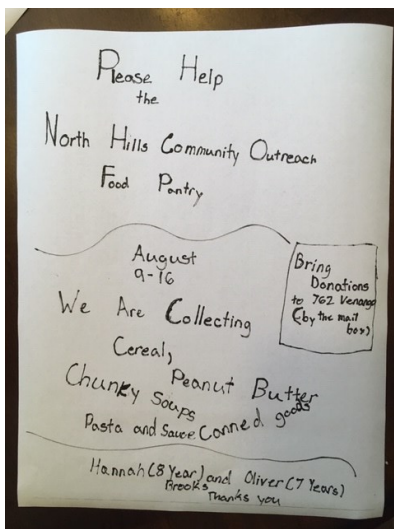 Please Help
the
North Hills Community Outreach
Food Pantry
August
9-16
Bring
Donations
to 762 Venango
(by the mail
box)
We Are Collecting
Cereal,
Peanut Butter
Chunky Soups
Pasta and Sauce Canned goods
Hannah (8 Year) and Oliver (7 Years)
Brooks
Thanks you